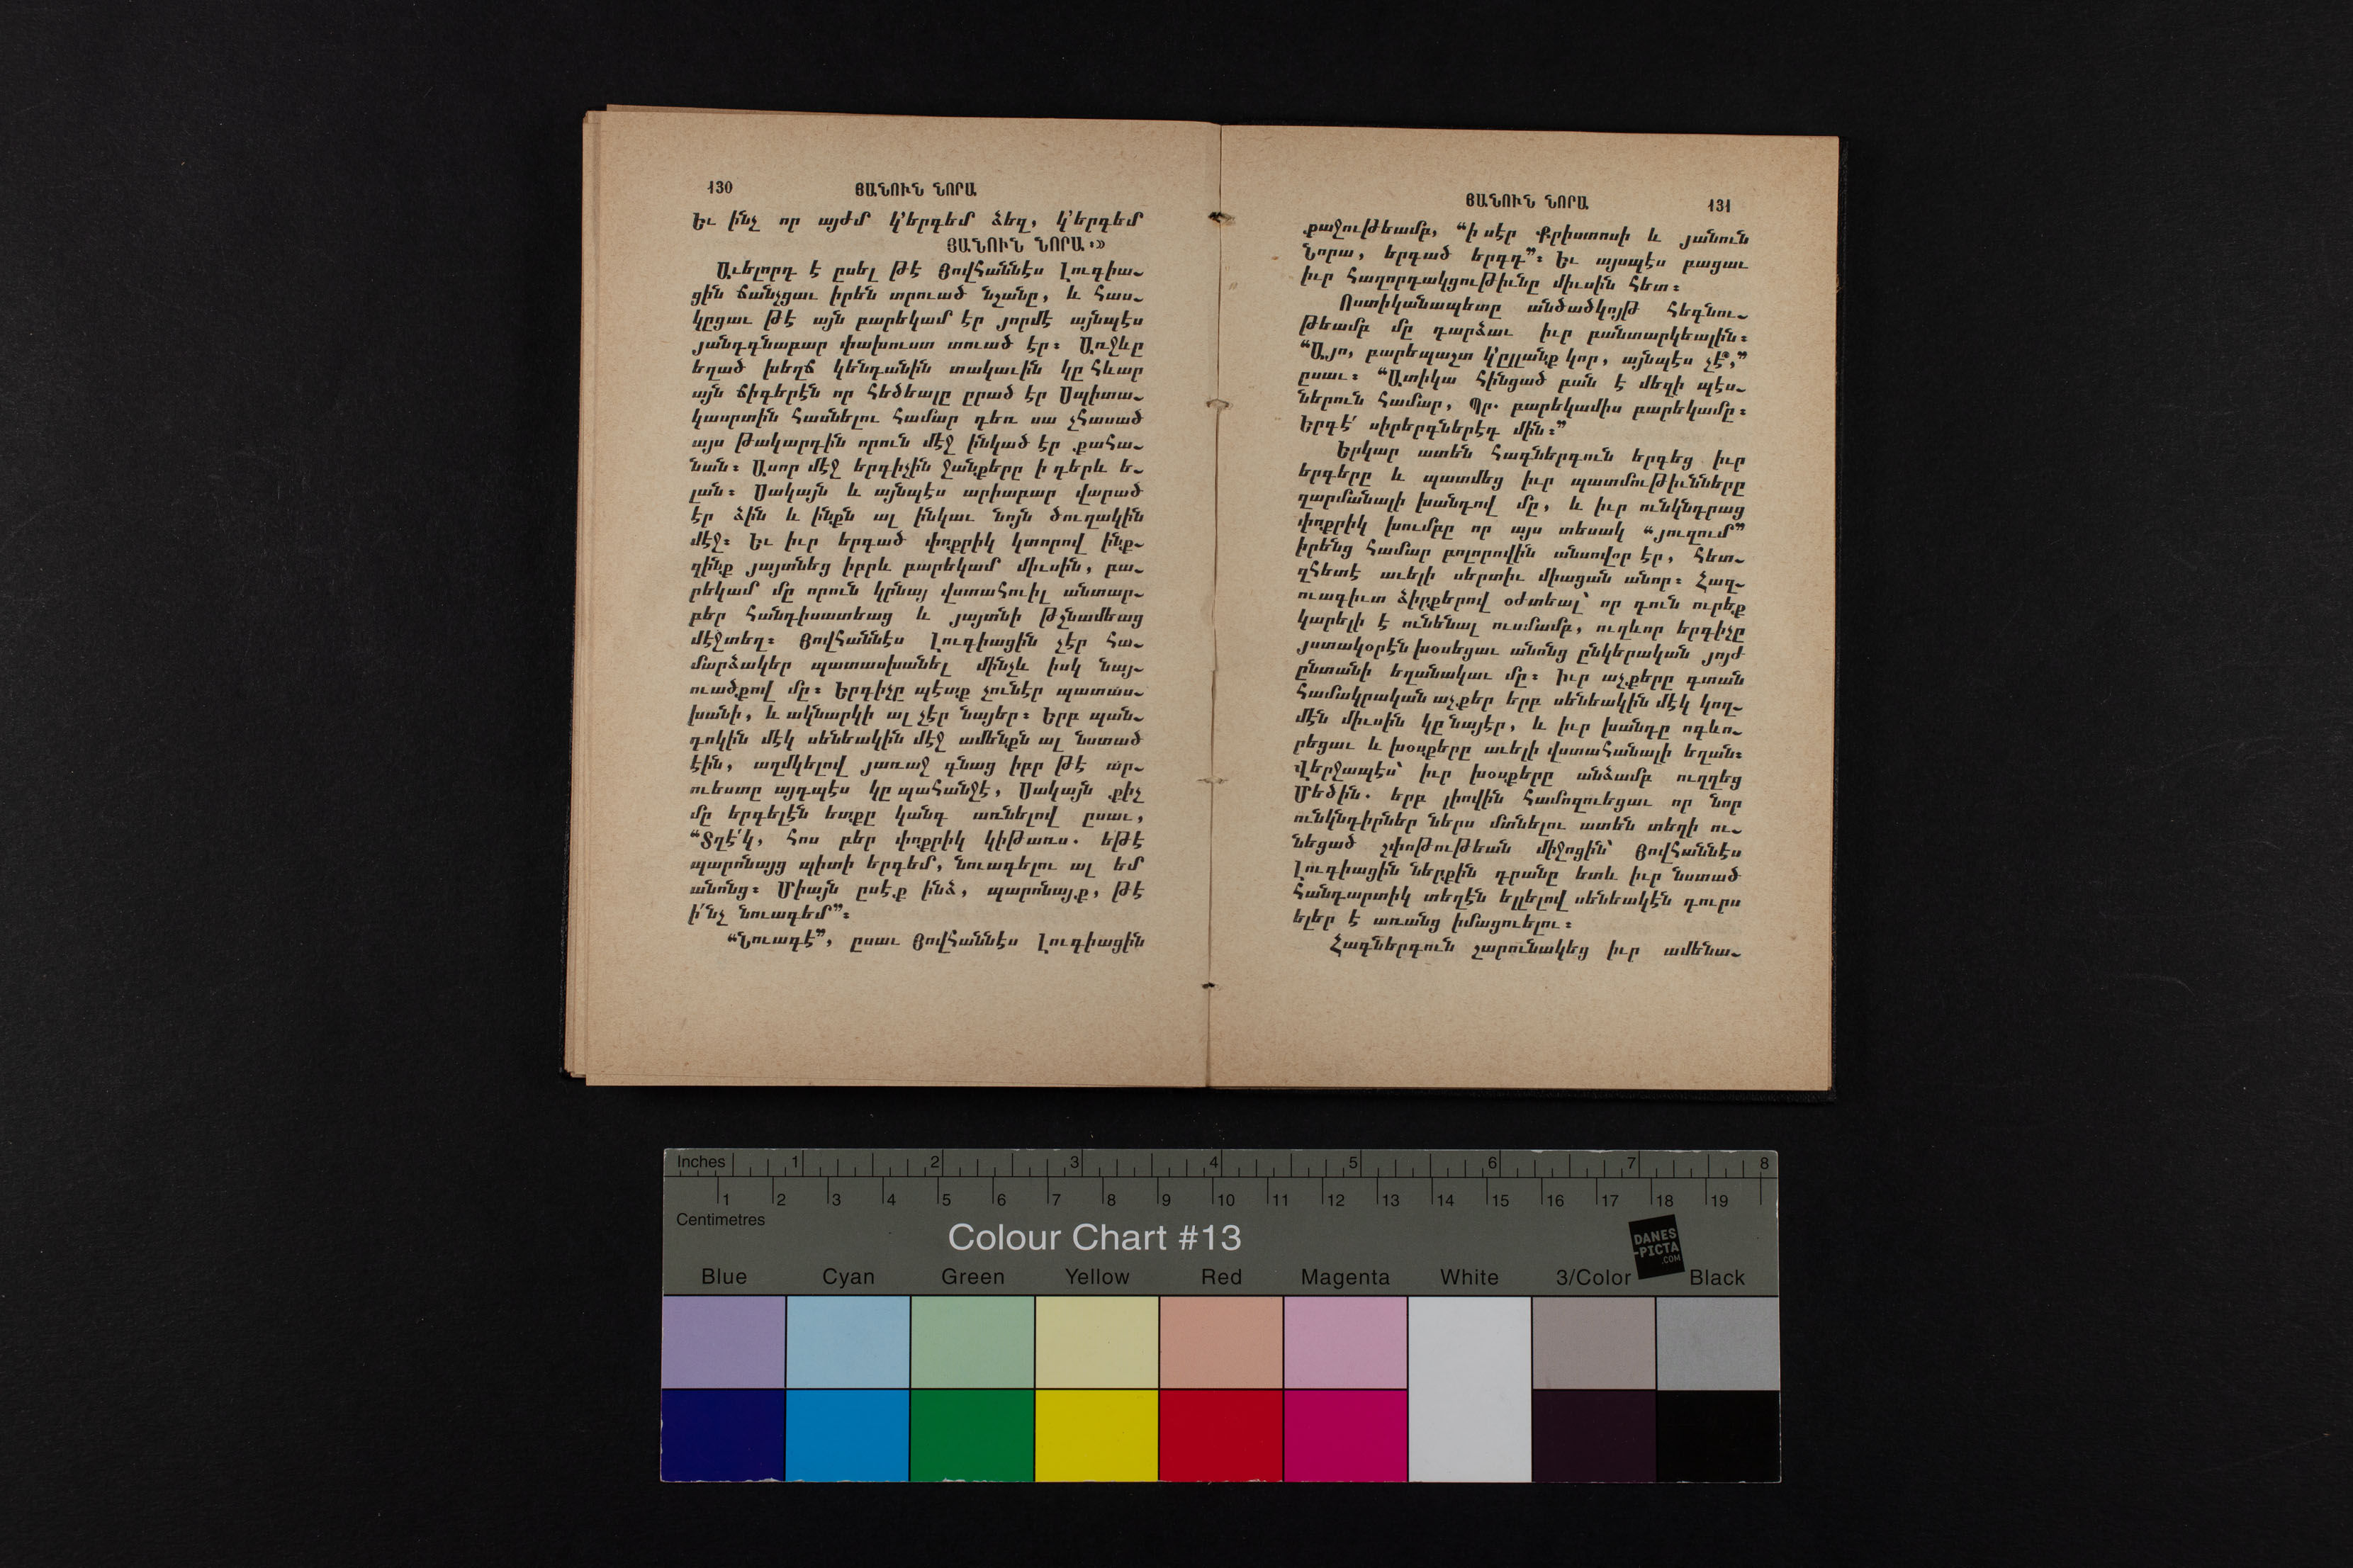 130 ՅԱՆՈՒՆ ՆՈՐԱ
Եւ ինչ որ այժմ կ՚երգեմ ձեզ, կ՚երգեմ
ՅԱՆՈՒՆ ՆՈՐԱ։»
Աւելորդ է ըսել թէ Յովհաննէս Լուդիա֊
ցին ճանչցաւ իրեն տրուած նշանը, և հաս֊
կըցաւ թէ այն բարեկամ էր յորմէ այնպէս
յանդգնաբար փախուստ տուած էր։ Առջևը
եղած խեղճ կենդանին տակաւին կը հևար
այն ճիգերէն որ հեծեալը ըրած էր Սպիտա֊
կասրտին հասնելու համար դեռ սա չհասած
այս թակարդին որուն մէջ ինկած էր քահա֊
նան։ Ասոր մէջ երգիչին ջանքերը ի դերև ե֊
լան։ Սակայն և այնպէս արիաբար վարած
էր ձին և ինքն ալ ինկաւ նոյն ծուղակին
մէջ։ Եւ իւր երգած փոքրիկ կտորով ինք֊
զինք յայտնեց իբրև բարեկամ միւսին, բա֊
րեկամ մը որուն կրնայ վստահուիլ անտար֊
բեր հանդիսատեսաց և յայտնի թշնամեաց
մէջտեղ։ Յովհաննէս Լուդիացին չէր հա֊
մարձակեր պատասխանել մինչև իսկ նայ֊
ուածքով մը։ Երգիչը պէտք չունէր պատաս֊
խանի, և ակնարկի ալ չէր նայեր։ Երբ պան֊
դոկին մէկ սենեակին մէջ ամենքն ալ նստած
էին, աղմկելով յառաջ գնաց իբր թէ ար֊
ուեստը այդպէս կը պահանջէ, Սակայն քիչ
մը երգելէն ետքը կանգ առնելով ըսաւ,
“Տղէ՛կ, հոս բեր փոքրիկ կիթառս. եթէ
պարոնայց պիտի երգեմ, նուագելու ալ եմ
անոնց։ Միայն ըսէք ինձ, պարոնայք, թէ
ի՛նչ նուագեմ”։
“Նուագէ”, ըսաւ Յովհաննէս Լուդիացին
ՅԱՆՈՒՆ ՆՈՐԱ 131
քաջութեամբ, “ի սէր Քրիստոսի և յանուն
Նորա, երգած երգդ”։ Եւ այսպէս բացաւ
իւր հաղորդակցութիւնը միւսին հետ։
Ոստիկանապետը անծածկոյթ հեգնու֊
թեամբ մը դարձաւ իւր բանտարկեալին։
“Այո, բարեպաշտ կ՚ըլլանք կոր, այնպէս չէ՞,”
ըսաւ։ “Ատիկա հինցած բան է մեզի պէս֊
ներուն համար, Պր. բարեկամիս բարեկամը։
Երգէ՛ սիրերգներէդ մին։”
Երկար ատեն Հագներդուն երգեց իւր
երգերը և պատմեց իւր պատմութիւնները
զարմանալի խանդով մը, և իւր ունկնդրաց
փոքրիկ խումբը որ այս տեսակ “յուզում”
իրենց համար բոլորովին անսովոր էր, հետ֊
զհետէ աւելի սերտիւ միացան անոր։ Հազ֊
ուագիւտ ձիրքերով օժտեալ՝ որ դուն ուրեք
կարելի է ունենալ ուսմամբ, ուղևոր երգիչը
յստակօրէն խօսեցաւ անոնց ընկերական յոյժ
ընտանի եղանակաւ մը։ Իւր աչքերը գտան
համակրական աչքեր երբ սենեակին մէկ կող֊
մէն միւսին կը նայէր, և իւր խանդը ոգևո֊
րեցաւ և խօսքերը աւելի վստահանալի եղան։
Վերջապէս՝ իւր խօսքերը անձամբ ուղղեց
Մեծին. երբ լիովին համոզուեցաւ որ նոր
ունկնդիրներ ներս մտնելու ատեն տեղի ու֊
նեցած շփոթութեան միջոցին՝ Յովհաննէս
Լուդիացին ներքին դրանը ետև իւր նստած
հանդարտիկ տեղէն ելլելով սենեակէն դուրս
ելեր է առանց իմացուելու։
Հագներդուն շարունակեց իւր ամենա֊
Inches 1 2 3 4 5 6 7 8
1 2 3 4 5 6 7 8 9 10 11 12 13 14 15 16 17 18 19
Centimetres
Colour Chart #13
DANES
-PICTA
.COM
Blue Cyan Green Yellow Red Magenta White 3/Color Black